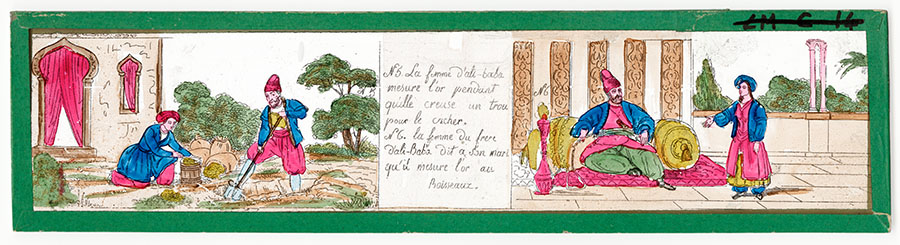 LM C 14
N5. La femme d'ali-baba
mesure l'or pendant
quille creuse un trou
pour le cacher.
N6. la femme du frere
d'ali-Baba dit a son mari
qu'il mesure l'or au
Boisseaux.
N6